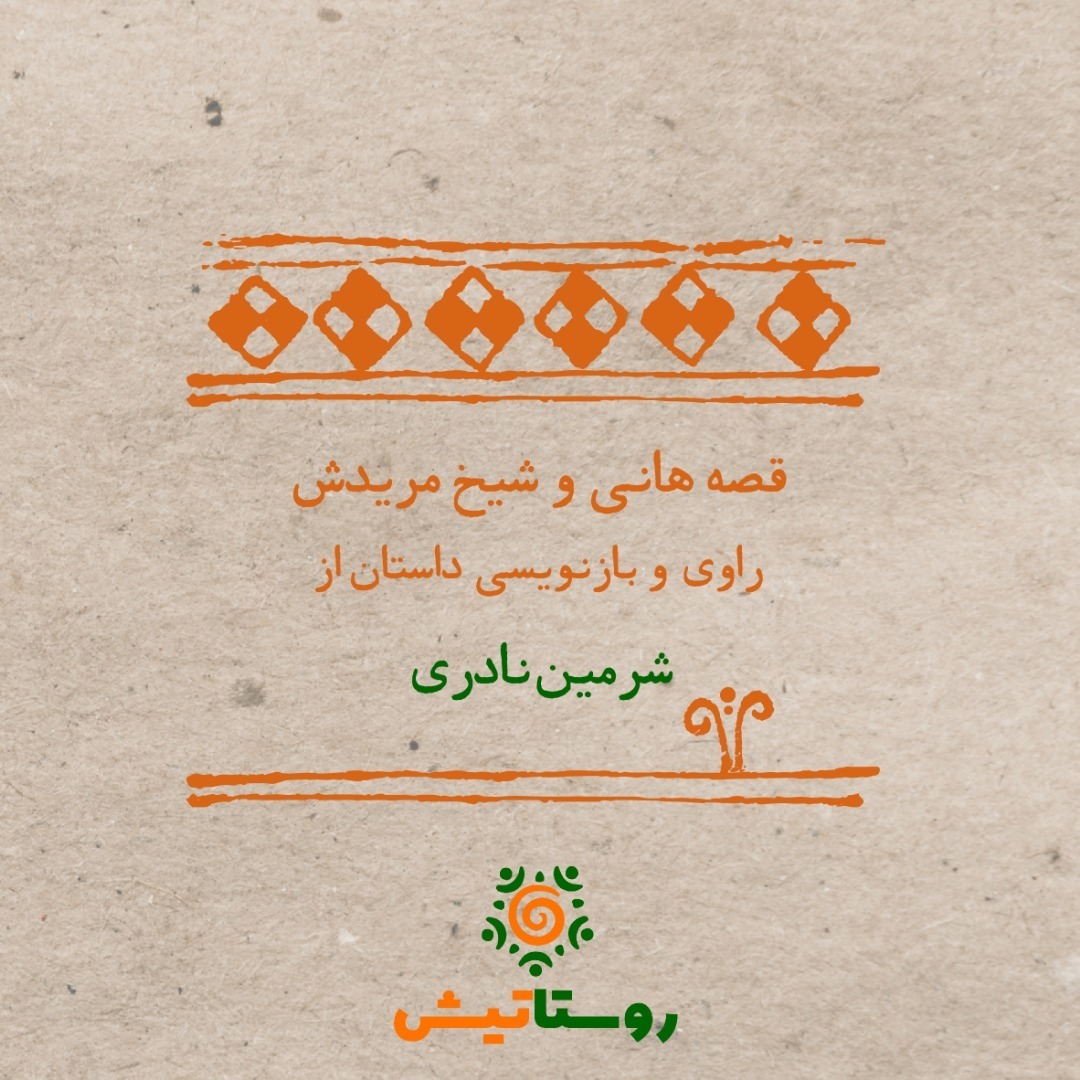 قصه هانی و شیخ مریدش
راوی و بازنویسی داستان از
شرمین نادری
روستاتیش